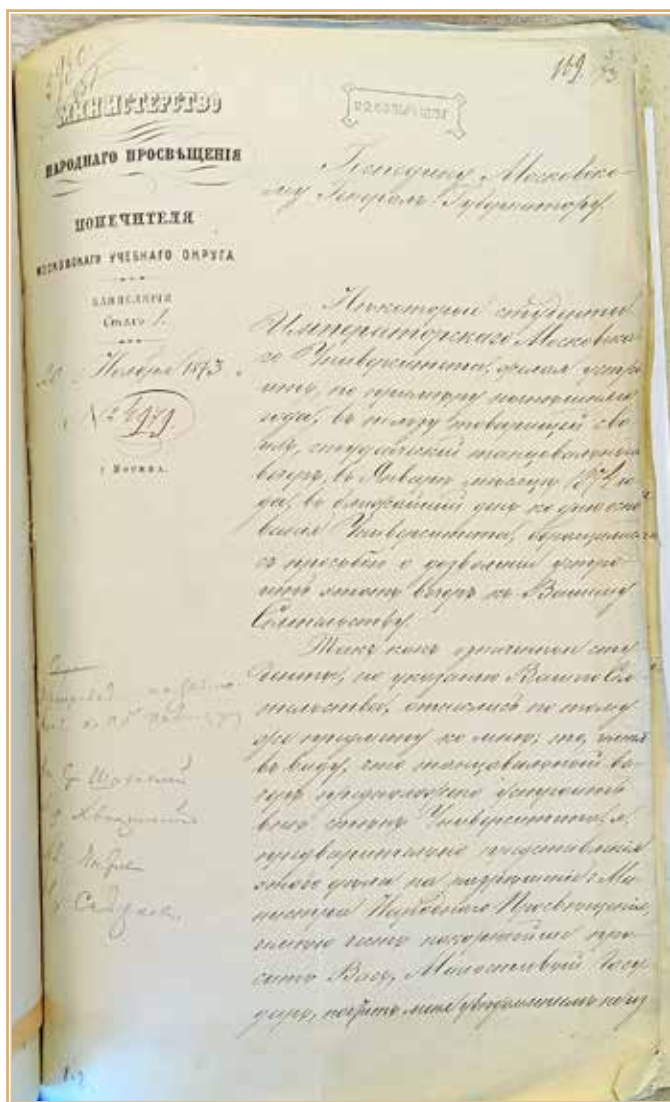 169.
МИНИСТЕРСТВО
НАРОДНАГО ПРОСВѢЩЕНІЯ
ПОПЕЧИТЕЛЯ
МОСКОВСКАГО УЧЕБНАГО ОКРУГА
КАНЦЕЛЯРІЯ
Столъ 1.
Ноября 1873
№ 4979
г. Москва.
Господину Московско-
му Генералъ-Губернатору.
Нѣкоторые студенты
Императорскаго Московска-
го Университета, желая устро-
ить, по примѣру прошлаго
года, въ пользу товарищей сво-
ихъ, студенческій танцовальный
вечеръ, въ Январѣ мѣсяцѣ 1874 го-
да, въ ближайшій день ко дню осно-
ванія Университета, обращались
съ просьбою о дозволеніи устро-
ить этотъ вечеръ къ Вашему
Сіятельству.
Такъ какъ означенные сту-
денты, по указанію Вашего Сія-
тельства, отнеслись по тому
же предмету ко мнѣ; то, имѣя
въ виду, что танцовальный ве-
черъ предположено устроить
внѣ стѣнъ Университета, я,
предварительно представленія
этого дѣла на разрѣшеніе г. Ми-
нистра Народнаго Просвѣщенія,
имѣю честь покорнѣйше про-
сить Васъ, Милостивый Госу-
дарь, почтить меня увѣдомленіемъ